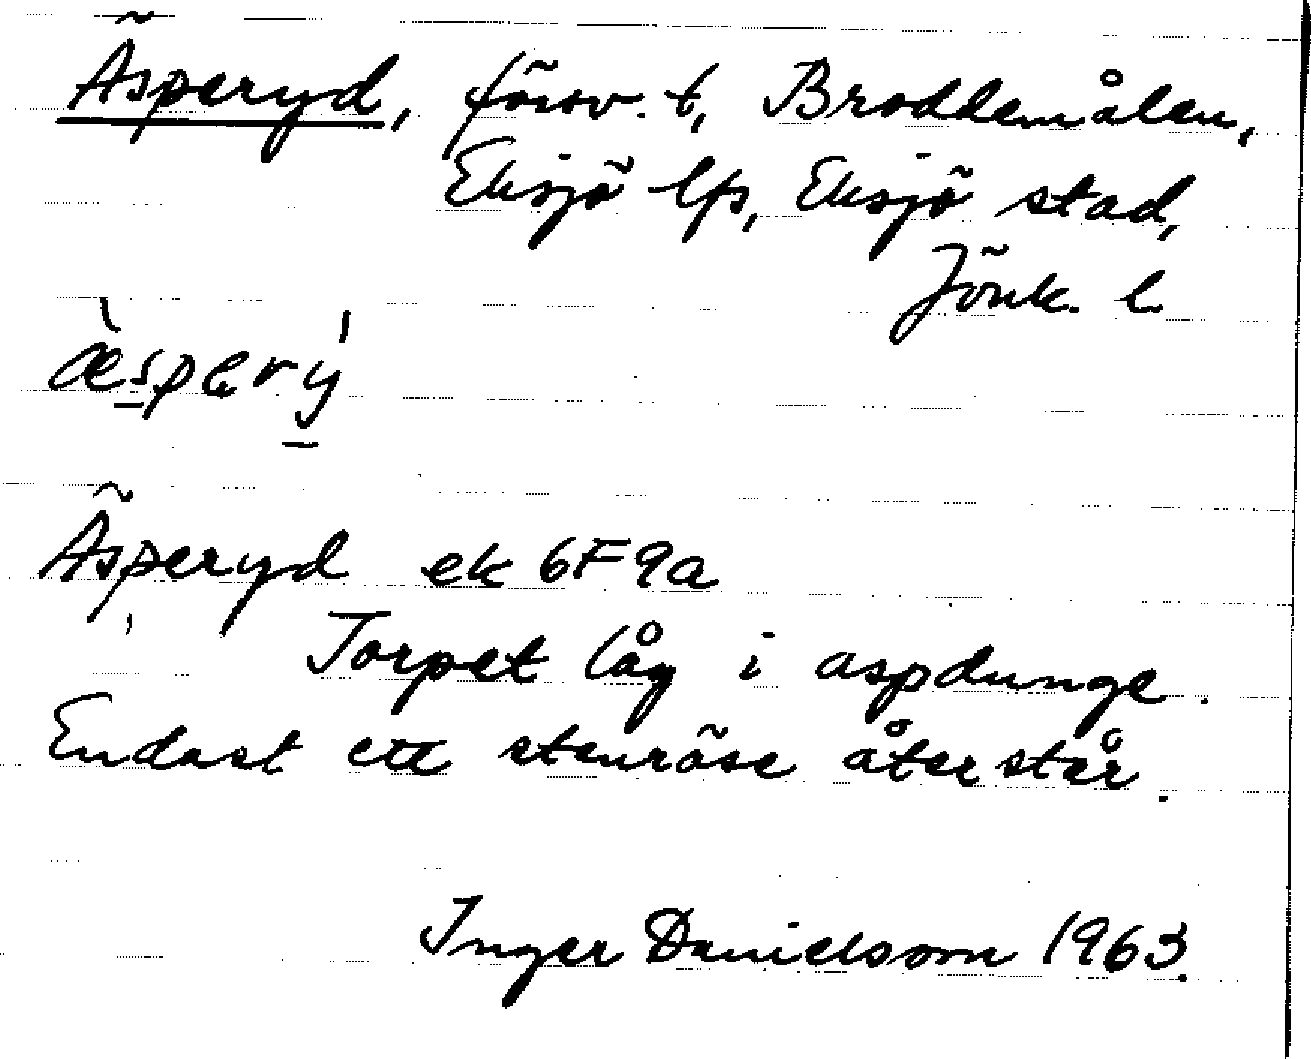 Äsperyd, försv. t, Broddemålen,
Eksjö lfs, Eksjö stad,
Jönk. l
æ̀spərý
Äsperyd ek 6F9a
Torpet låg i aspdunge.
Endast ett stenröse återstår.
Inger Danielsson 1963.